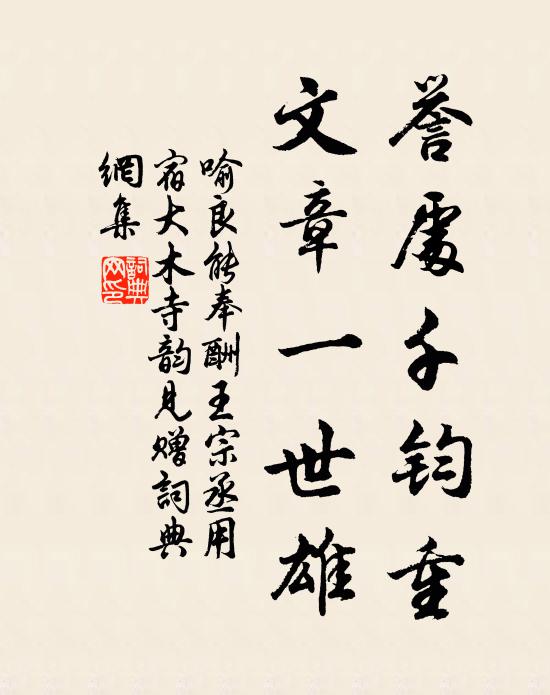 譽處千鈞重
文章一世雄
喻良能奉酬王宗丞用
宿大木寺韵見贈詞典
網集
詞典網印